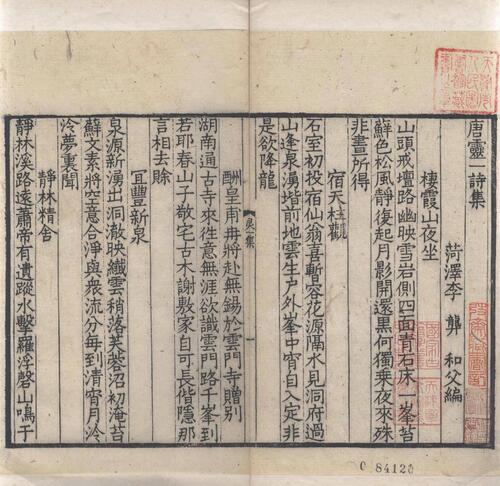 唐靈一詩集
菏澤李龏和父編
棲霞山夜坐
山頭戒壇路幽映雪岩側四面青石床一峯苔
蘚色松風靜復起月影開還黒何獨乗夜來殊
非晝所得
宿天柱觀
石室初投宿仙翁喜暫容花源隔水見洞府過
山逢泉湧堦前地雲生户外峯中宵自入定非
是欲降龍
灵一集
一
酬皇甫冉將赴無錫於雲門寺贈别
湖南通古寺來徃意無涯欲識雲門路千峯到
若耶春山子敬宅古木謝敷家自可長偕隱那
言相去賒
宜豐新泉
泉源新湧出洞澈映纎雲稍落芙蓉沼初淹苔
蘚文素將空意合淨與衆流分每到清宵月泠
泠夢裏聞
靜林精舍
靜林溪路遠蕭帝有遺蹤水擊羅浮磬山鳴于
0 84120